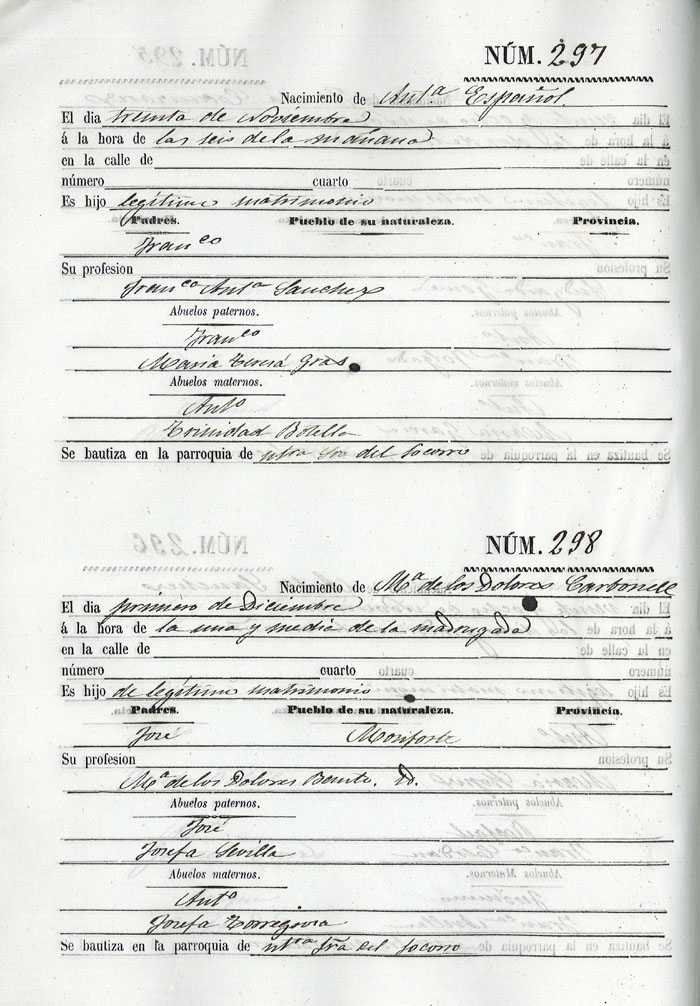 NÚM. 297
Nacimiento de Ant.ª Español.
El dia treinta de Noviembre
á la hora de las seis de la mañana
en la calle de
número cuarto
Es hijo legítimo matrimonio
Padres. Pueblo de su naturaleza. Provincia.
Fran.co
Su profesion
Fran.ca Ant.ª Sanchez
Abuelos paternos.
Fran.co
Maria Teresa Gras.
Abuelos maternos.
Ant.º
Trinidad Botella
Se bautiza en la parroquia de ntra Sra del Socorro
NÚM. 298
Nacimiento de M.ª de los Dolores Carbonell
El dia primero de Diciembre
á la hora de la una y media de la madrugada
en la calle de
número cuarto
Es hijo de legítimo matrimonio
Padres. Pueblo de su naturaleza. Provincia.
José Monforte
Su profesion
M.ª de los Dolores Benito. Id.
Abuelos paternos.
José
Josefa Sevilla
Abuelos maternos.
Ant.º
Josefa Torregrosa
Se bautiza en la parroquia de ntra Sra del Socorro